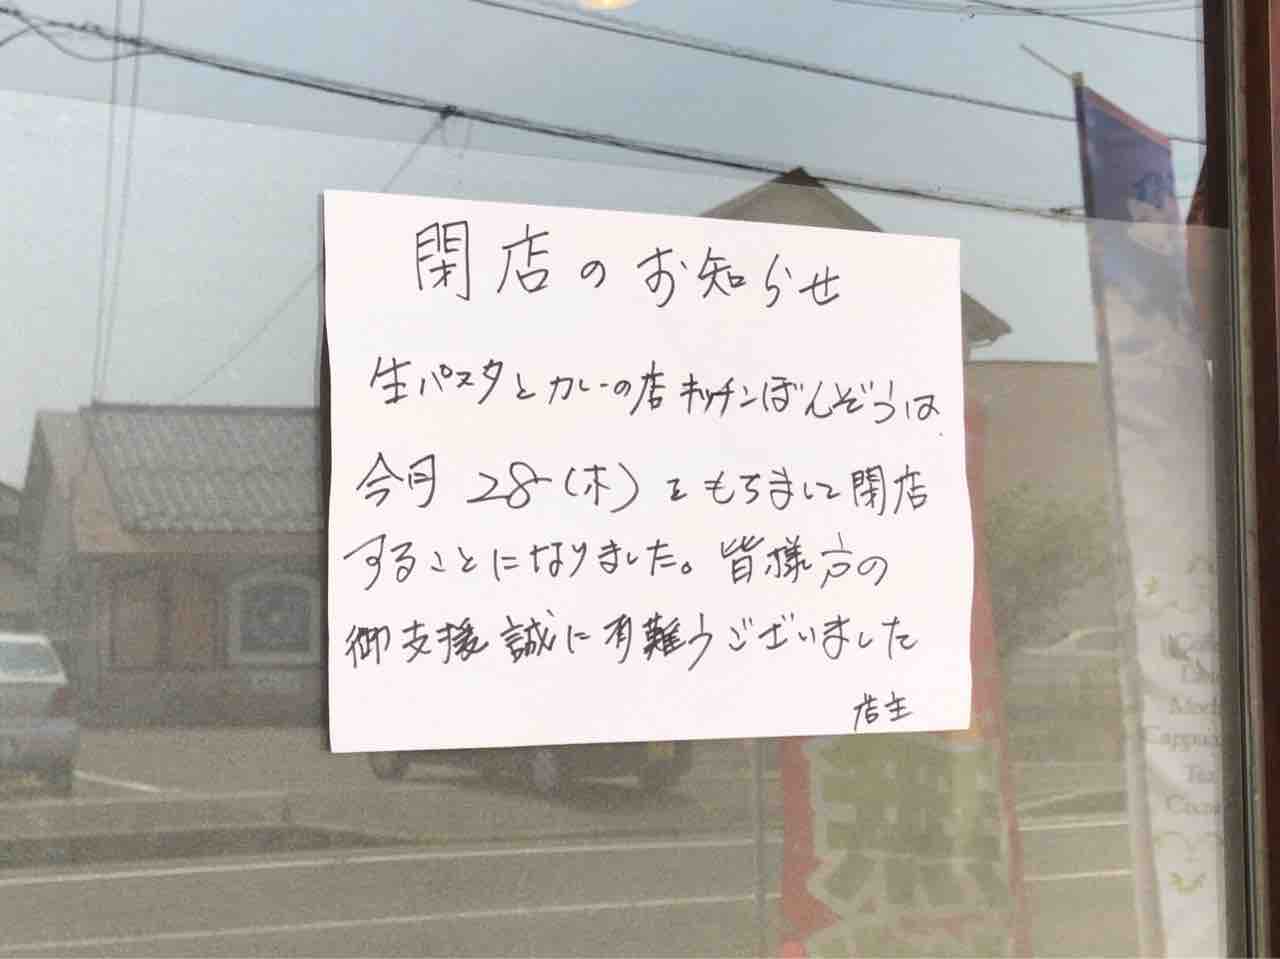 閉店のお知らせ
生パスタとカレーの店キッチンぼんぞうは
今月28(木)をもちまして閉店
することになりました。皆様方の
御支援誠に有難うございました
店主